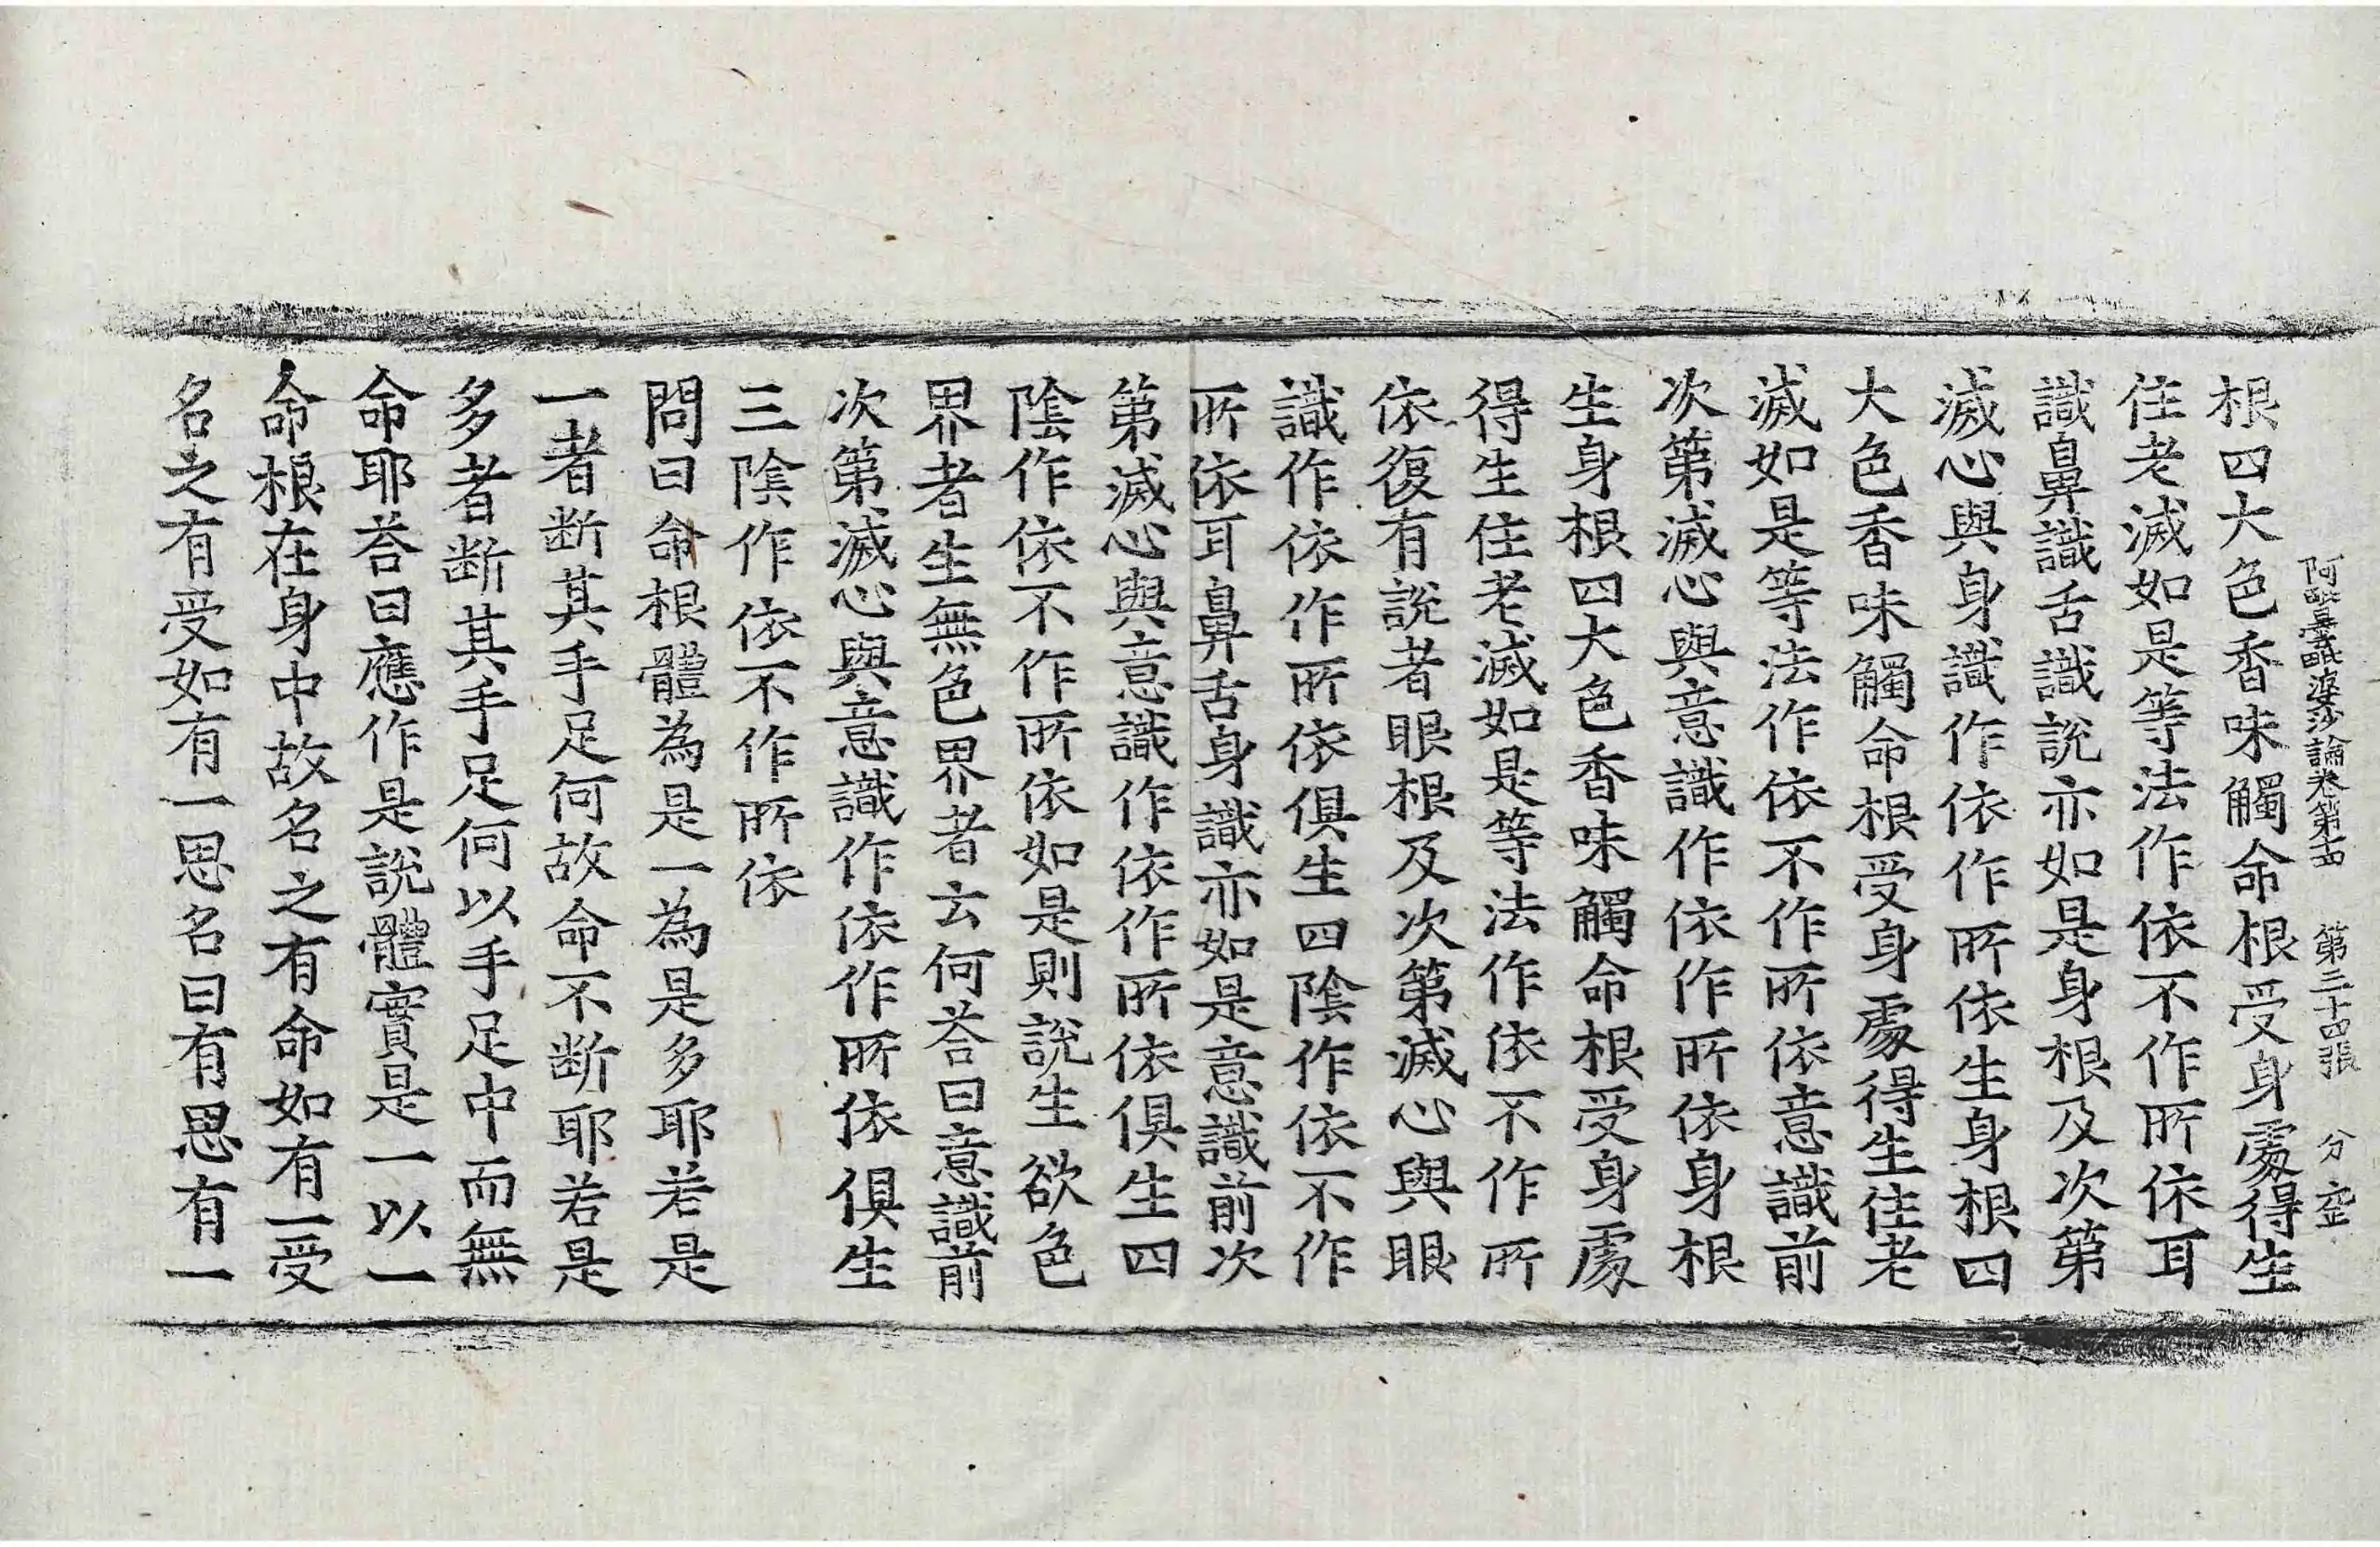 阿毗曇毗婆沙論卷第十四 第三十四張 分 空
根四大色香味觸命根受身處得生
住老滅如是等法作依不作所依耳
識鼻識舌識說亦如是身根及次第
滅心與身識作依作所依生身根四
大色香味觸命根受身處得生住老
滅如是等法作依不作所依意識前
次第滅心與意識作依作所依身根
生身根四大色香味觸命根受身處
得生住老滅如是等法作依不作所
依復有說者眼根及次第滅心與眼
識作依作所依俱生四陰作依不作
所依耳鼻舌身識亦如是意識前次
第滅心與意識作依作所依俱生四
陰作依不作所依如是則說生欲色
界者生無色界者云何荅曰意識前
次第滅心與意識作依作所依俱生
三陰作依不作所依
問曰命根體為是一為是多耶若是
一者斷其手足何故命不斷耶若是
多者斷其手足何以手足中而無
命耶荅曰應作是說體實是一以一
命根在身中故名之有命如有一受
名之有受如有一思名曰有思有一